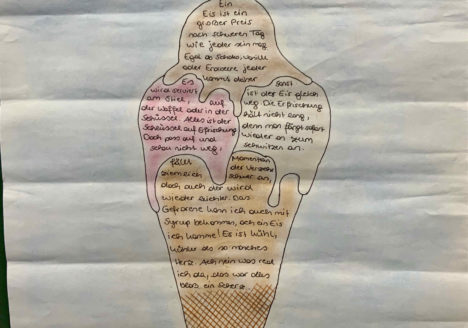 Ein
Eis ist ein
großer Preis
nach schweren Tag
wie jeder sein mag
Egal ob Schoko, Vanille
oder Erdbeere jeder
kommt daher
Eis
wird serviert
am Stiel, auf
der Waffel oder in der
Schüssel. Alles ist der
Schlüssel auf Erfrischung
Doch pass auf und
schau nicht weg,
sonst
ist der Eis gleich
weg. Die Erfrischung
hält nicht lang,
denn man fängt sofort
wieder an zum
schwitzen an.
Momentan
fällt der Verzehr
ziemlich schwer an,
doch auch der wird
wieder leichter. Das
Gefrorene kann ich auch mit
Syrup bekommen, ach ein Eis
ich komme! Es ist kühl,
kühler als so manches
Herz. Ach nein was red
ich da, das war alles
bloß ein Scherz.